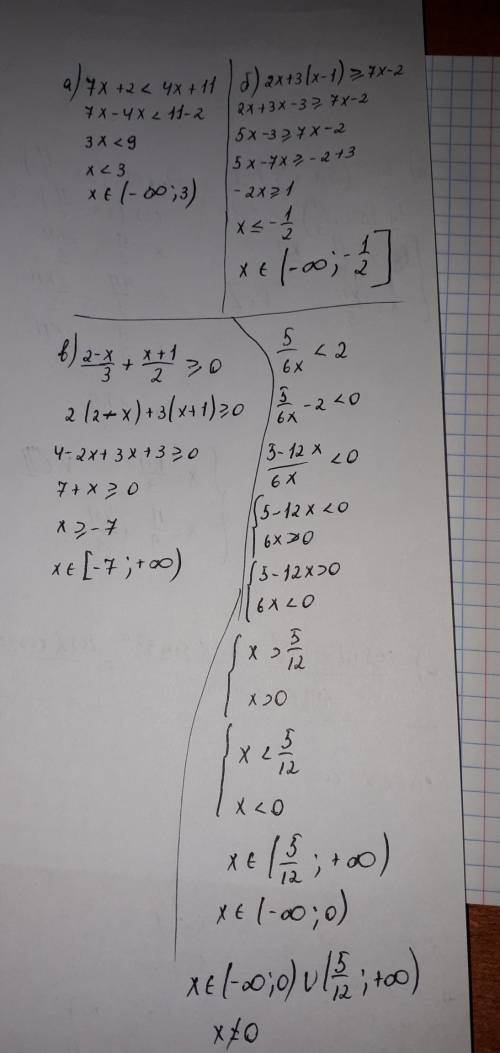 а) 7x + 2 < 4x + 11
7x - 4x < 11 - 2
3x < 9
x < 3
x ∈ (-∞; 3)
б) 2x + 3(x - 1) ≥ 7x - 2
2x + 3x - 3 ≥ 7x - 2
5x - 3 ≥ 7x - 2
5x - 7x ≥ -2 + 3
-2x ≥ 1
x ≤ -1/2
x ∈ (-∞; -1/2]
в) (2-x)/3 + (x+1)/2 ≥ 0
2(2-x) + 3(x+1) ≥ 0
4 - 2x + 3x + 3 ≥ 0
7 + x ≥ 0
x ≥ -7
x ∈ [-7; +∞)
5/6x < 2
5/6x - 2 < 0
(5-12x)/6x < 0
{5 - 12x < 0
{6x > 0
{5 - 12x > 0
{6x < 0
{x > 5/12
{x > 0
{x < 5/12
{x < 0
x ∈ (5/12; +∞)
x ∈ (-∞; 0)
x ∈ (-∞; 0) ∪ (5/12; +∞)
x ≠ 0